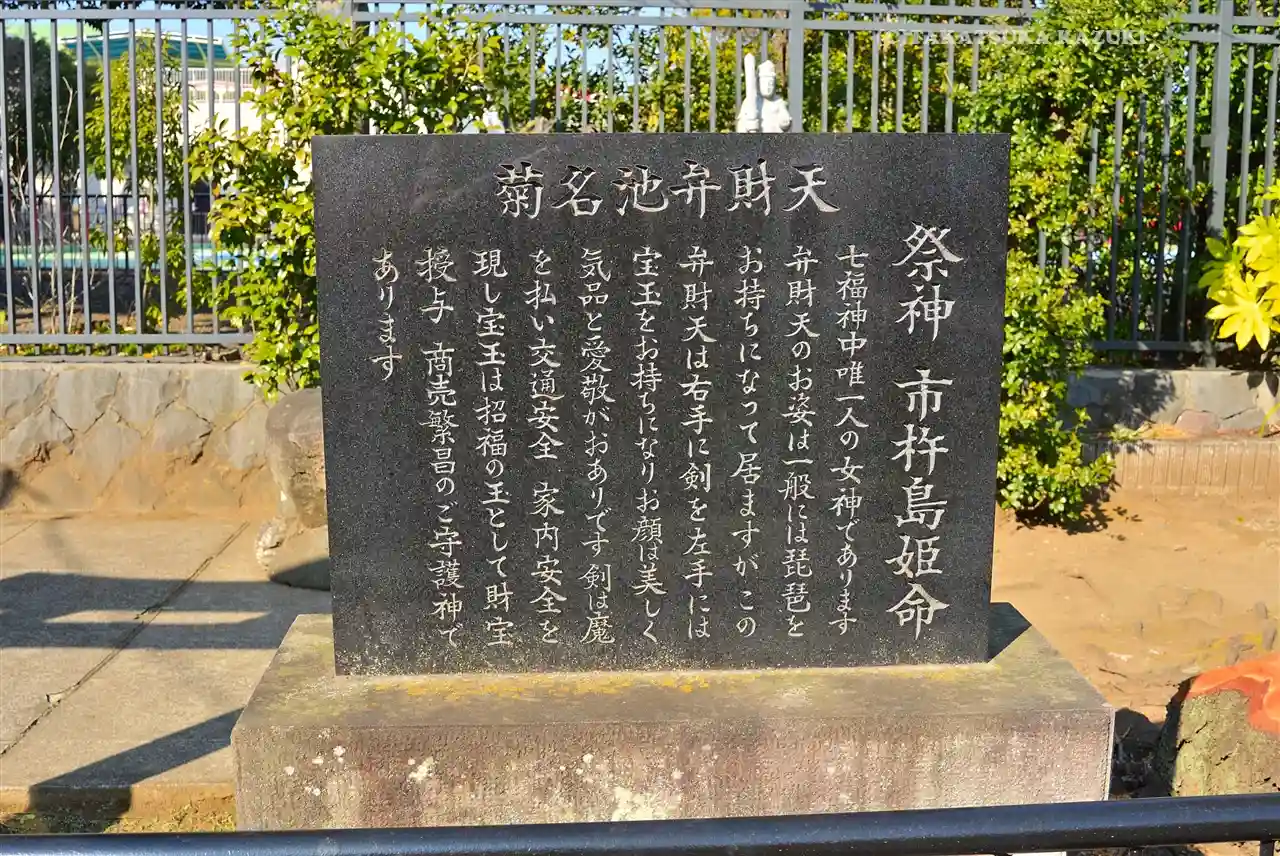 菊名池弁財天
祭神 市杵島姫命
七福神中唯一人の女神であります
弁財天のお姿は一般には琵琶を
お持ちになって居ますがこの
弁財天は右手に剣を左手には
宝玉をお持ちになりお顔は美しく
気品と愛敬がおありです剣は魔
を払い交通安全 家内安全を
現し宝玉は招福の玉として財宝
授与 商売繁昌のご守護神で
あります
©TAKATSUKA KAZUKI